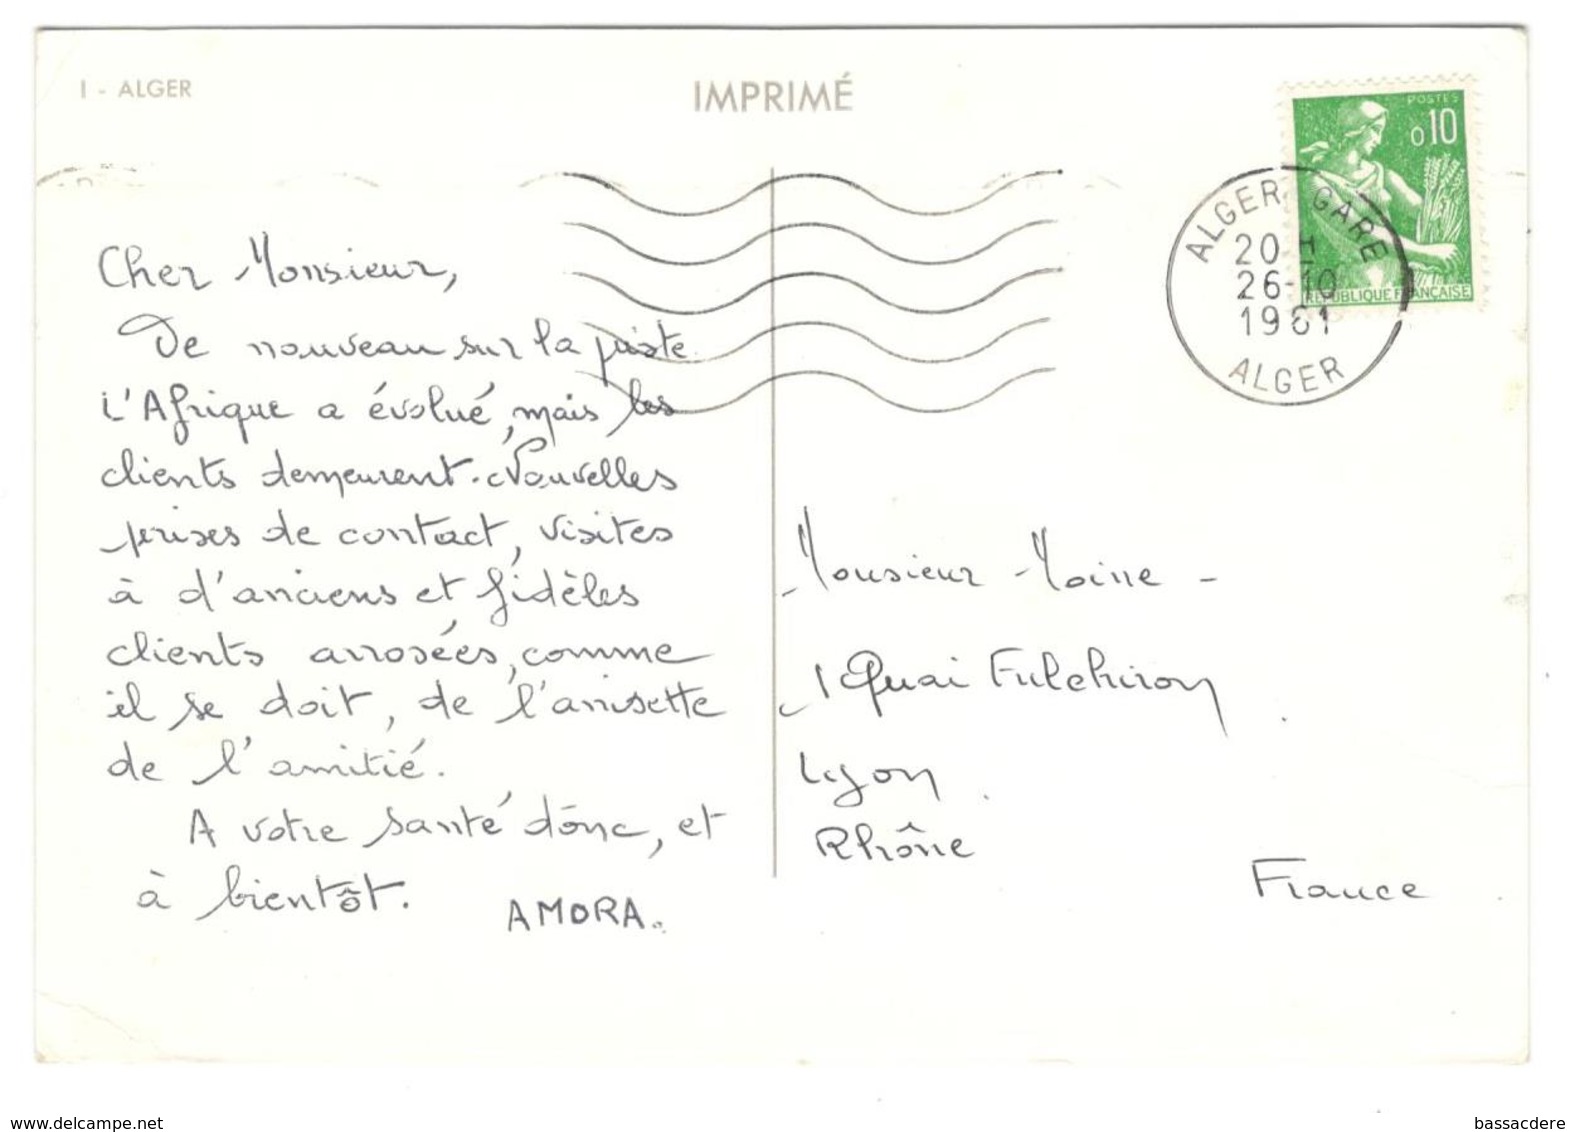 I - ALGER
IMPRIMÉ
POSTES
0,10
REPUBLIQUE FRANÇAISE
ALGER GARE
20 H
26-10
1961
ALGER
Cher Monsieur,
De nouveau sur la piste
L'Afrique a évolué, mais les
clients demeurent. Nouvelles
prises de contact, visites
à d'anciens et fidèles
clients arrosées, comme
il se doit, de l'anisette
de l'amitié.
A votre santé donc, et
à bientôt.
AMORA.
Monsieur Moine -
1 Quai Fulchiron
Lyon
Rhône
France
www.delcampe.net
bassacdere